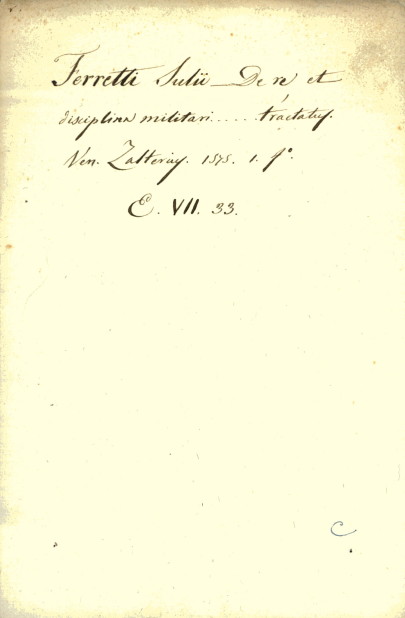 Ferretti Julii De re et
disciplina militari..... tractatus.
Ven. Zalterius. 1575. 1. fº.
E. VII. 33.
C